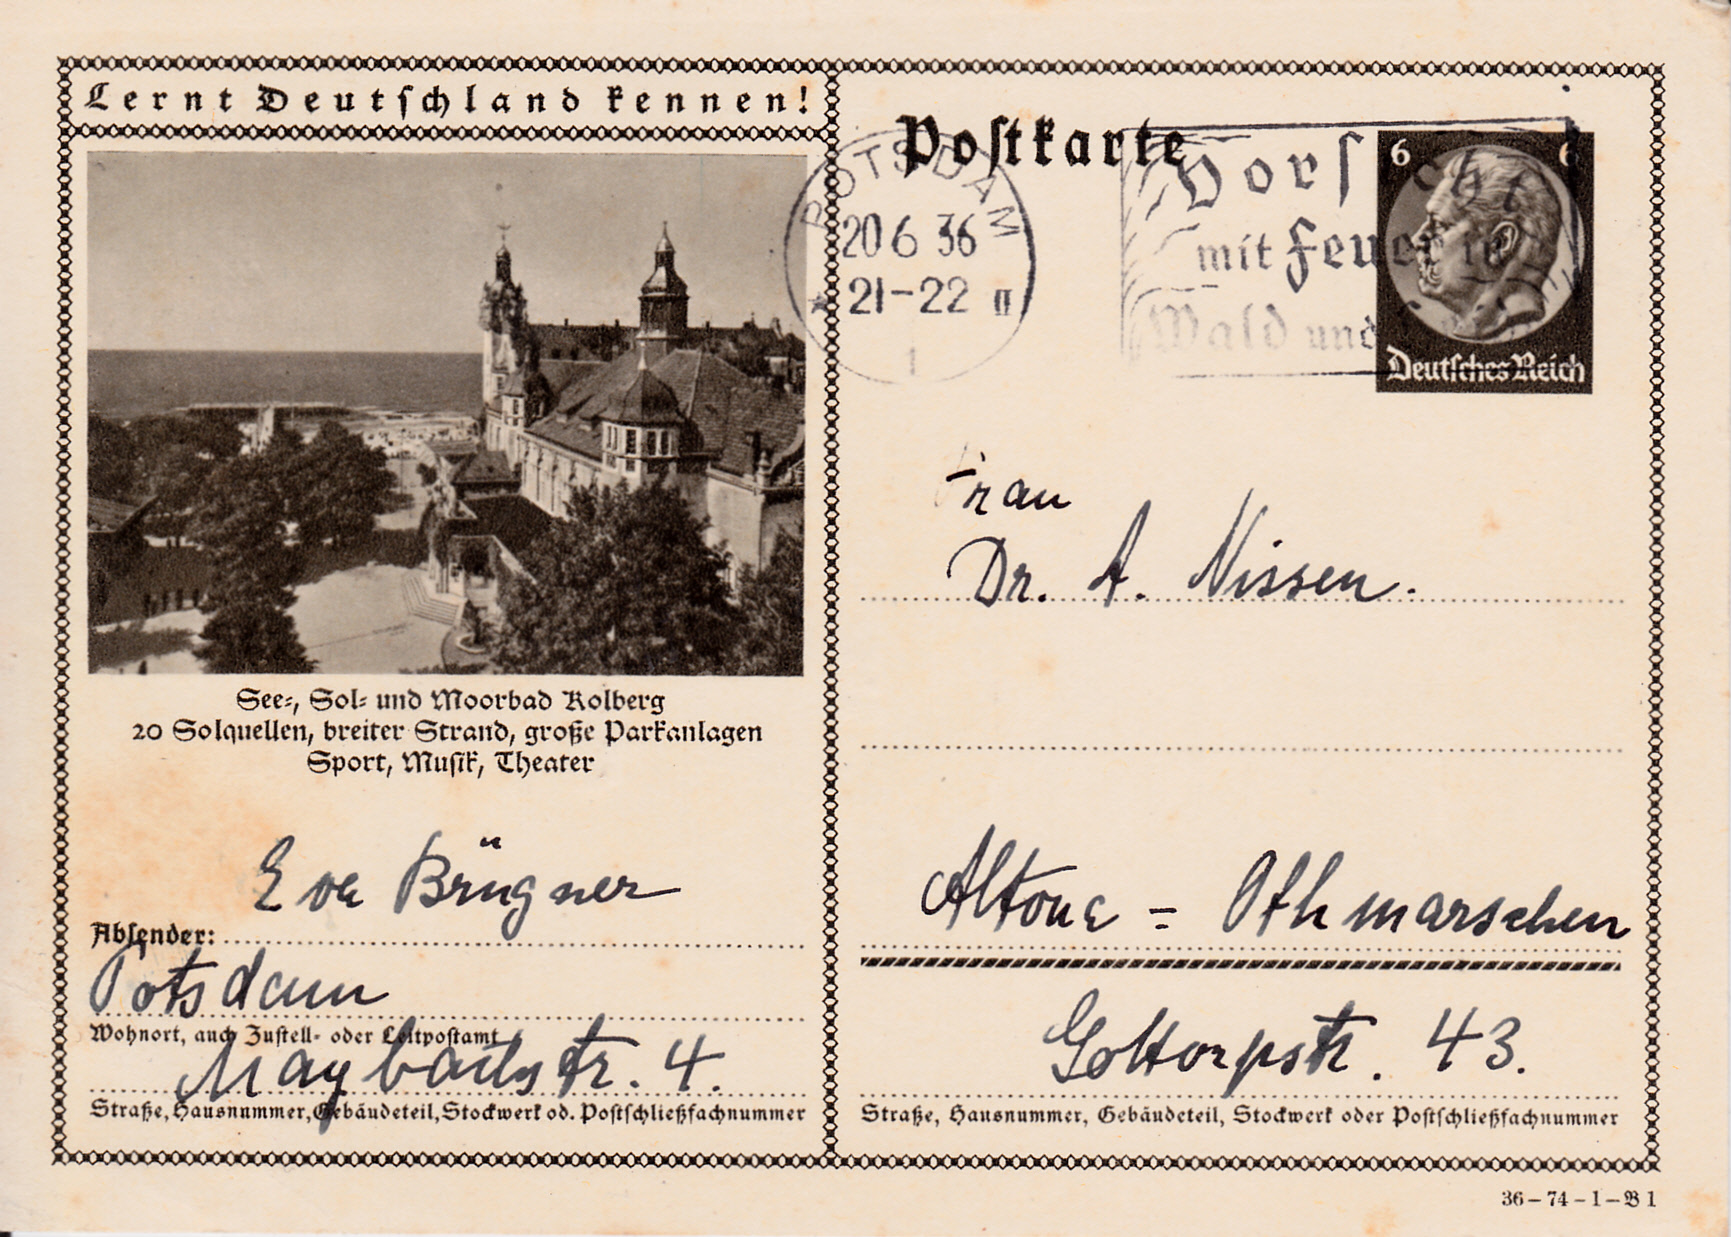 Lernt Deutschland kennen!
See-, Sol- und Moorbad Kolberg
20 Solquellen, breiter Strand, große Parkanlagen
Sport, Musik, Theater
Eva Brügner
Absender:
Potsdam
Wohnort, auch Zustell- oder Leitpostamt
Maybachstr. 4.
Straße, Hausnummer, Gebäudeteil, Stockwerk od. Postschließfachnummer
Postkarte
POTSDAM
20 6 36
21-22 II
1
Vorsicht
mit Feuer in
Wald und
6 6
Deutsches Reich
Frau
Dr. A. Nissen.
Altona = Othmarschen
Gottorpstr. 43.
Straße, Hausnummer, Gebäudeteil, Stockwerk oder Postschließfachnummer
36-74-1-B 1